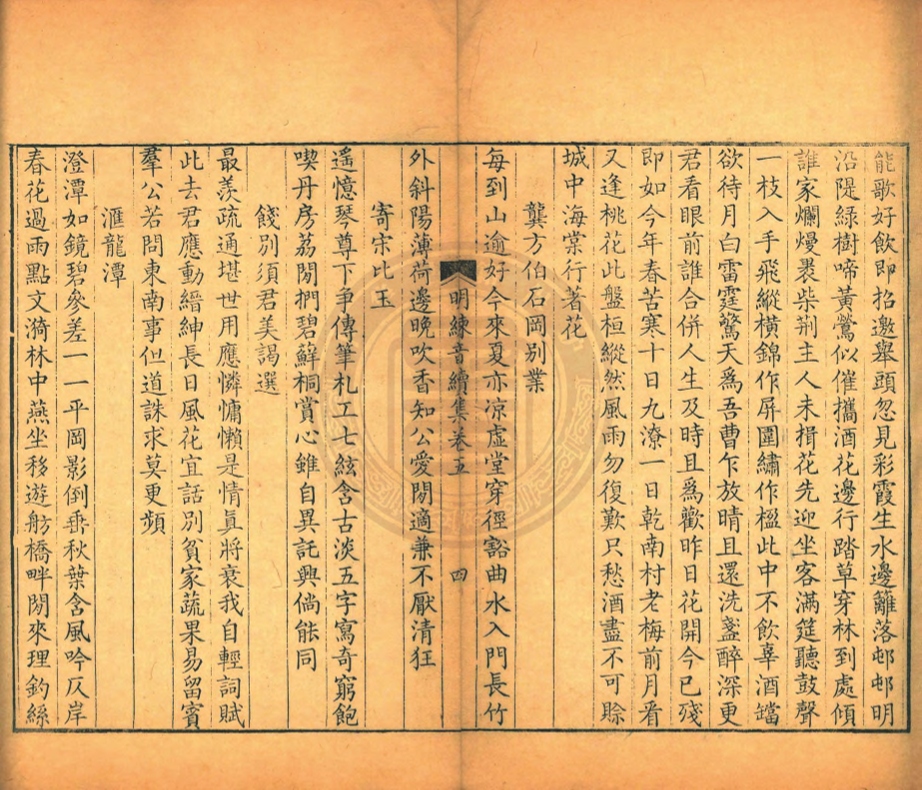 能歌好飲即招邀舉頭忽見彩霞生水邊籬落邨邨明
沿隄綠樹啼黃鶯似催攜酒花邊行踏草穿林到處傾
誰家爛熳褁柴荆主人未揖花先迎坐客滿筵聽鼓聲
一枝入手飛縱橫錦作屏圍繡作楹此中不飲辜酒鐺
欲待月白雷霆驚天爲吾曹乍放晴且還洗盞醉深更
君看眼前誰合併人生及時且爲歡昨日花開今已殘
即如今年春苦寒十日九潦一日乾南村老梅前月看
又逢桃花此盤桓縱然風雨勿復歎只愁酒盡不可賒
城中海棠行著花
龔方伯石岡別業
每到山逾好今來夏亦凉虛堂穿徑豁曲水入門長竹
明練音續集卷五 四
外斜陽薄荷邊晚吹香知公愛閒適兼不厭清狂
寄宋比玉
遥憶琴尊下爭傳筆札工七絃含古淡五字寫奇窮飽
喫丹房荔閒捫碧蘚桐賞心雖自異託興倘能同
餞別須君美謁選
最羨疏通堪世用應憐慵懶是情眞將衰我自輕詞賦
此去君應動縉紳長日風花宜話別貧家蔬果易留賓
羣公若問東南事但道誅求莫更頻
滙龍潭
澄潭如鏡碧參差一一平岡影倒垂秋葉含風吟仄岸
春花過雨點文漪林中燕坐移遊舫橋畔閒來理釣絲